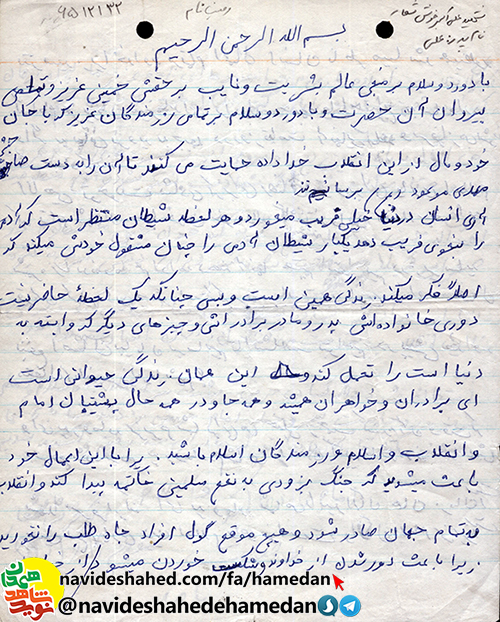 ۶۵۱۲۱۳۲
وصیت نامه
شهید علی اکبر
نام پدر: علی
بسم الله الرحمن الرحیم
با درود و سلام بر منجی عالم بشریت و نایب بر حقش خمینی عزیز و تمامی
پیروان آن حضرت و با درود و سلام بر تمامی رزمندگان عزیز که با جان
خود و مال از این انقلاب خدا داده حمایت می کنند تا آن را به دست صاحبش
مهدی موعود برسانند
آدمی انسان در دنیا خیلی فریب میخورد و هر لحظه شیطان منتظر است که آدم
را بنحوی فریب دهد یکبار شیطان آدمی را چنان مشغول خودش میکند که
اصلا فکر میکند زندگی همین است و بس چنانکه یک لحظهٔ حاضر نیست
دوری خانواده اش پدر و مادر برادر اش و چیزهای دیگر که وابسته به
دنیا است را تحمل کند و این همان زندگی حیوانی است
ای برادران و خواهران همیشه و همه جا و در همه حال پشتیبان امام
و انقلاب و اسلام و رزمندگان اسلام باشید. زیرا با این اعمال خود
باعث میشوید که جنگ بزودی به نفع مسلمین خاتمه پیدا کند و انقلاب
به تمام جهان صادر شود و هیچ موقع گول افراد جاه طلب را نخورید
زیرا باعث دور شدن از خداوند و شکست خوردن میشود
نوید شاهد همدان
navideshahed.com/fa/hamedan
@navideshahedehamedan